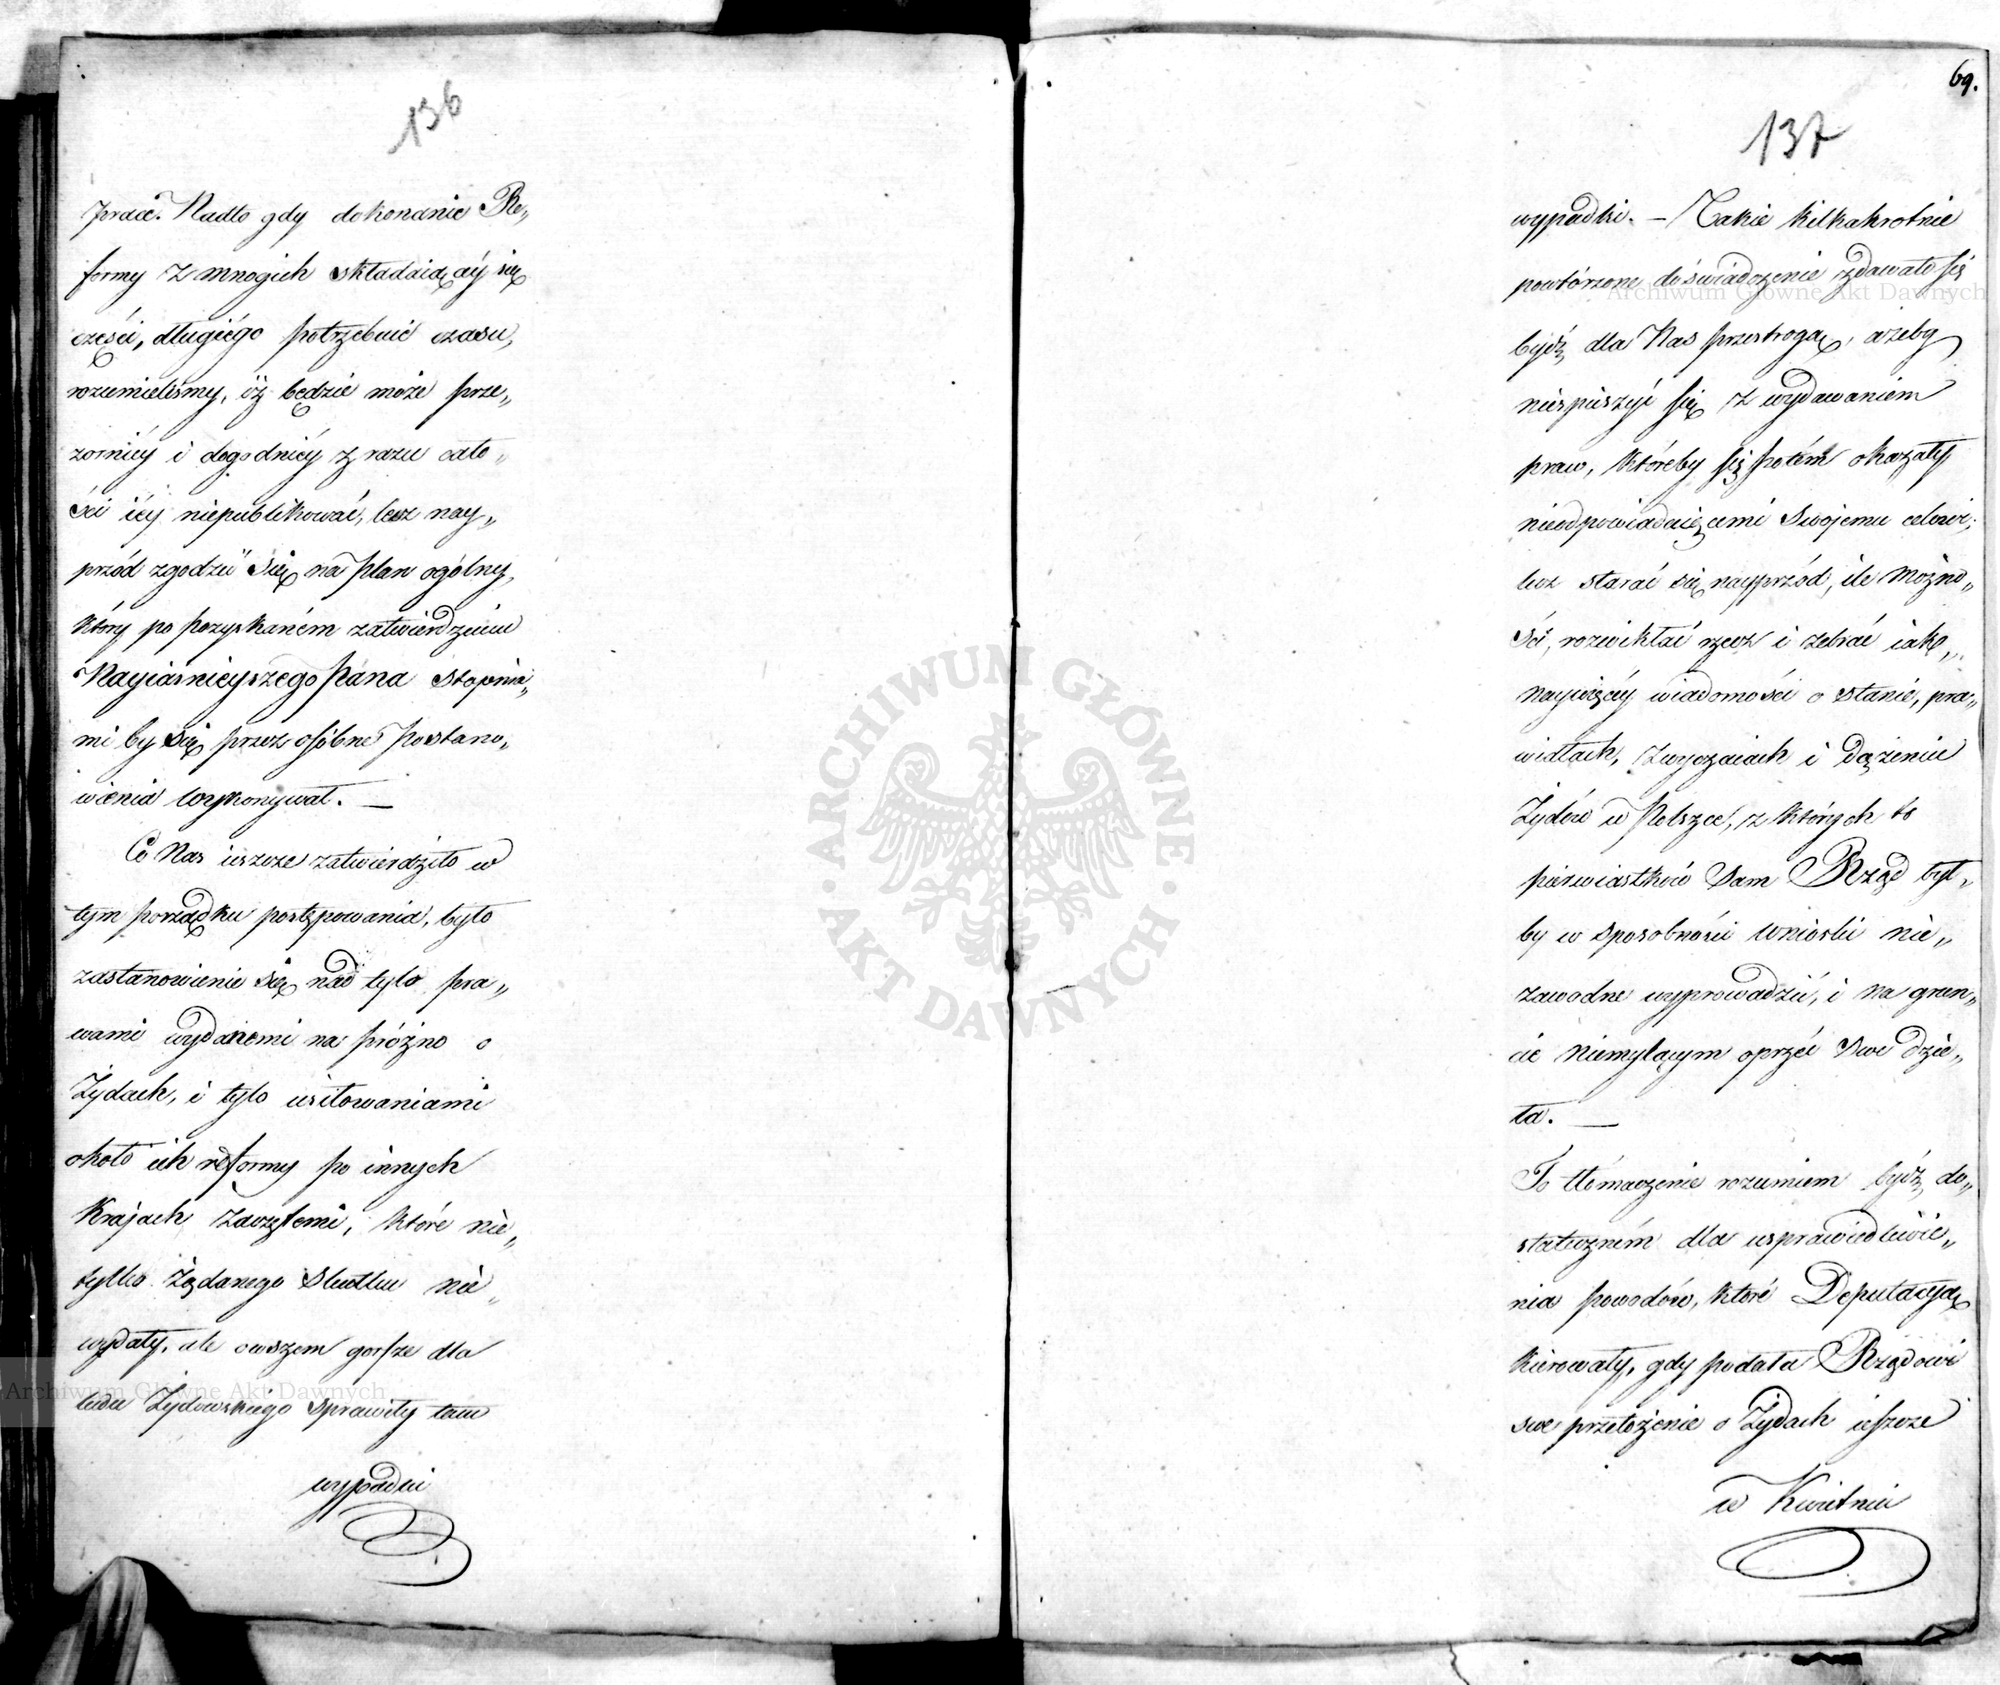 136
pracě. Nadto gdy dokonanie Re„
formy z mnogich składaiącéy się
części, długiégo potrzebuie czasu,
rozumieliśmy, iż będzie może prze„
zorniéy i dogodniéy z razu cało„
ści iéy niepublikować, lecz nay„
przód zgodzić się na plan ogólny,
który po pozyskaném zatwierdzeniu
Nayiaśnieyszego Pana stopnia„
mi by się przez osóbne Postano„
wienia wykonywał. —
Co Nas ieszcze zatwierdziło w
tym porządku postępowania, było
zastanowienie się nad tylo pra„
wami wydanemi na próżno o
Żydach, i tylo usiłowaniami
około ich reformy po innych
Krajach zaczętemi, które nie„
tylko żądanego skutku nie„
wydały, ale owszem gorsze dla
ludu Żydowskiego sprawiły tam
wypadki
69.
137
wypadki. — Takie kilkakrotnie
powtórzone doświadczenie zdawało się
bydź dla Nas przestrogą, ażeby
niespieszyć się z wydawaniem
praw, któreby się potém okazały
nieodpowiadaiącemi swojemu celowi;
lecz starać się nayprzód, ile możno„
ści, rozwikłać rzecz i zebrać iak„
naywięcéy wiadomości o stanie, pra„
widłach, zwyczaiach i dążeniu
Żydów w Polszcze, z których to
pierwiastków sam Rząd był„
by w sposobności wnioski nie„
zawodne wyprowadzić, i na grun„
cie niemylącym oprzéć swe dzie„
ła. —
To tłómaczenie rozumiem bydź do„
stateczném dla usprawiedliwie„
nia powodów, które Deputacyą
kierowały, gdy podała Rządowi
swe przełożenie o Żydach ieszcze
w Kwietniu
Archiwum Główne Akt Dawnych
Archiwum Główne Akt Dawnych
ARCHIWUM GŁÓWNE · AKT DAWNYCH ·